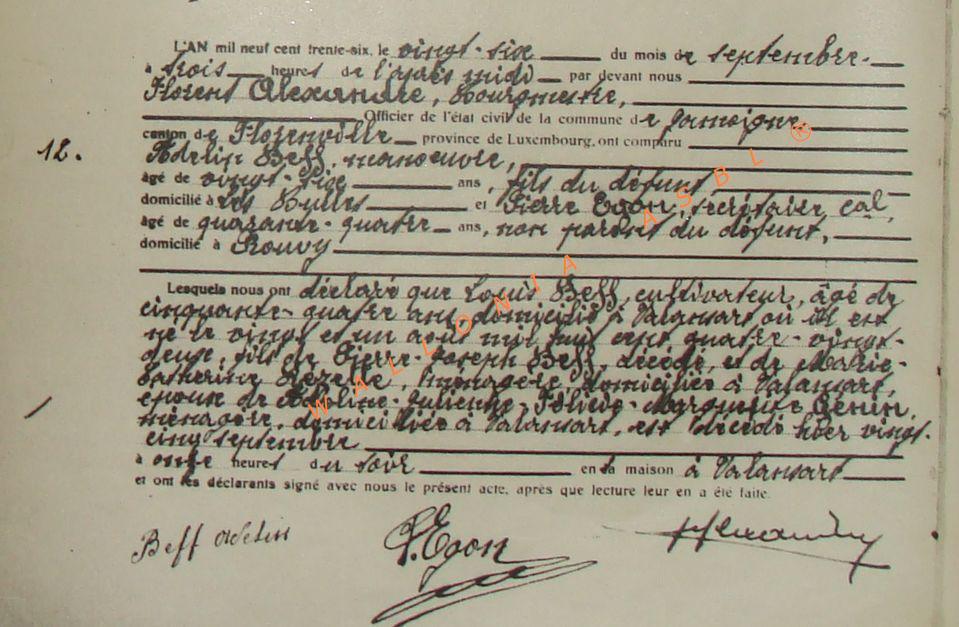 L'AN mil neuf cent trente-six, le vingt-six du mois de septembre
à trois heures de l'après midi par devant nous
Florent Alexandre, Bourgmestre,
Officier de l'état civil de la commune de Jamoigne
canton de Florenville province de Luxembourg, ont comparu
12.
Adelin Beff, manoeuvre,
âgé de vingt-six ans, fils du défunt
domicilié à Les Bulles et Pierre Egon, secrétaire cal,
âgé de quarante-quatre ans, non parent du défunt,
domicilié à Prouvy
Lesquels nous ont déclaré que Louis Beff, cultivateur, âgé de
cinquante-quatre ans, domicilié à Valansart où il est
né le vingt et un août mil huit cent quatre-vingt-
deux, fils de Pierre-Joseph Beff, décédé, et de Marie-
Catherine Lezelle, ménagère, domiciliée à Valansart,
époux de Adeline-Julienne-Félicie-Marguerite Genin,
ménagère, domiciliée à Valansart, est décédé hier vingt-
cinq septembre
à onze heures du soir en sa maison à Valansart
et ont les déclarants signé avec nous le présent acte, après que lecture leur en a été faite.
Beff Adelin P. Egon
WALLONIA ASBL ®